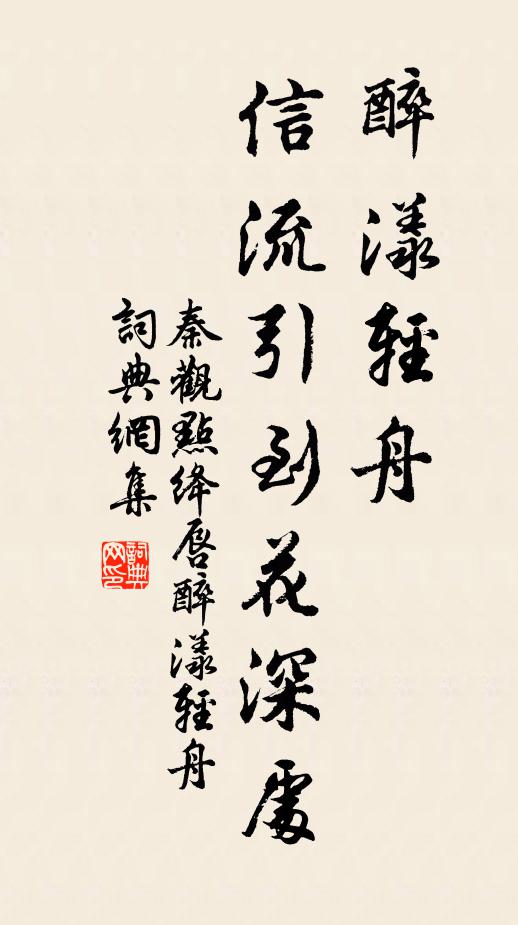 醉漾輕舟
信流引到花深處
秦觀點絳唇醉漾輕舟
詞典網集
詞典网印